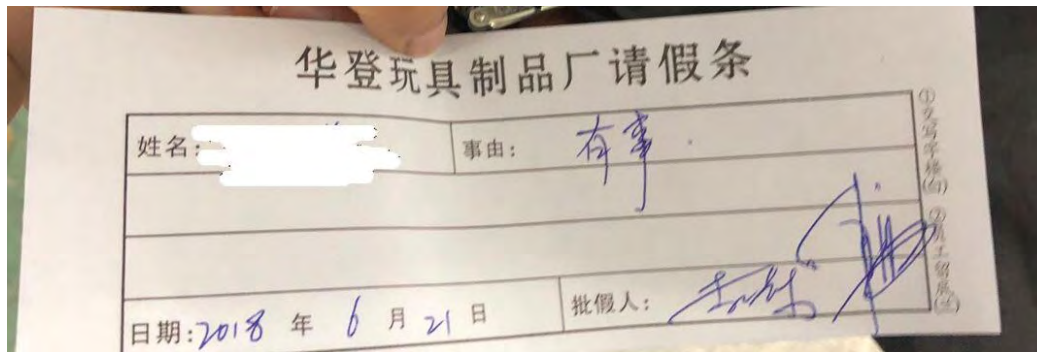 华登玩具制品厂请假条
姓名: 事由: 有事
日期:2018 年 6 月 21 日 批假人:
①交写字楼(白)
②员工留底